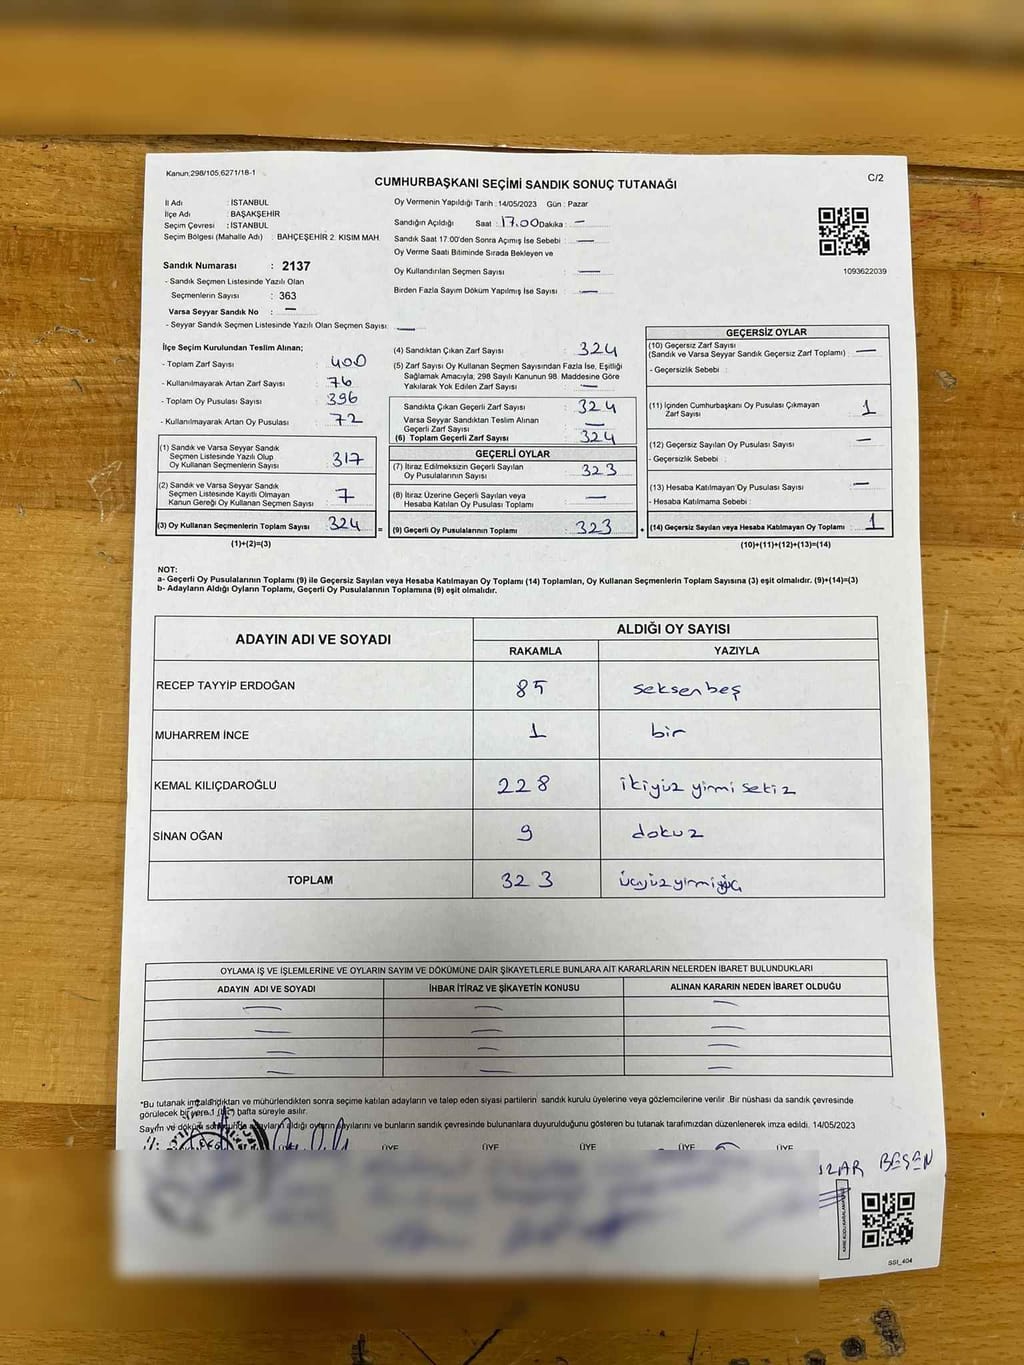 Kanun;298/105,6271/18-1
C/2
CUMHURBAŞKANI SEÇİMİ SANDIK SONUÇ TUTANAĞI
İl Adı : İSTANBUL
İlçe Adı : BAŞAKŞEHİR
Seçim Çevresi : İSTANBUL
Seçim Bölgesi (Mahalle Adı) : BAHÇEŞEHİR 2. KISIM MAH.
Sandık Numarası : 2137
- Sandık Seçmen Listesinde Yazılı Olan
Seçmenlerin Sayısı : 363
Varsa Seyyar Sandık No : —
- Seyyar Sandık Seçmen Listesinde Yazılı Olan Seçmen Sayısı: —
Oy Vermenin Yapıldığı Tarih : 14/05/2023 Gün : Pazar
Sandığın Açıldığı Saat : 17.00 Dakika : —
Sandık Saat 17:00'den Sonra Açımış İse Sebebi : —
Oy Verme Saati Bitiminde Sırada Bekleyen ve
Oy Kullandırılan Seçmen Sayısı : —
Birden Fazla Sayım Döküm Yapılmış İse Sayısı : —
1093622039
İlçe Seçim Kurulundan Teslim Alınan;
- Toplam Zarf Sayısı : 400
- Kullanılmayarak Artan Zarf Sayısı : 76
- Toplam Oy Pusulası Sayısı : 396
- Kullanılmayarak Artan Oy Pusulası : 72
(1) Sandık ve Varsa Seyyar Sandık
Seçmen Listesinde Yazılı Olup
Oy Kullanan Seçmenlerin Sayısı : 317
(2) Sandık ve Varsa Seyyar Sandık
Seçmen Listesinde Kayıtlı Olmayan
Kanun Gereği Oy Kullanan Seçmen Sayısı : 7
(3) Oy Kullanan Seçmenlerin Toplam Sayısı : 324 =
(1)+(2)=(3)
(4) Sandıktan Çıkan Zarf Sayısı : 324
(5) Zarf Sayısı Oy Kullanan Seçmen Sayısından Fazla İse, Eşitliği
Sağlamak Amacıyla; 298 Sayılı Kanunun 98. Maddesine Göre
Yakılarak Yok Edilen Zarf Sayısı : —
Sandıkta Çıkan Geçerli Zarf Sayısı : 324
Varsa Seyyar Sandıktan Teslim Alınan
Geçerli Zarf Sayısı : —
(6) Toplam Geçerli Zarf Sayısı : 324
GEÇERLİ OYLAR
(7) İtiraz Edilmeksizin Geçerli Sayılan
Oy Pusulalarının Sayısı : 323
(8) İtiraz Üzerine Geçerli Sayılan veya
Hesaba Katılan Oy Pusulası Toplamı : —
(9) Geçerli Oy Pusulalarının Toplamı : 323 +
GEÇERSİZ OYLAR
(10) Geçersiz Zarf Sayısı
(Sandık ve Varsa Seyyar Sandık Geçersiz Zarf Toplamı) : —
- Geçersizlik Sebebi :
(11) İçinden Cumhurbaşkanı Oy Pusulası Çıkmayan
Zarf Sayısı : 1
(12) Geçersiz Sayılan Oy Pusulası Sayısı : —
- Geçersizlik Sebebi :
(13) Hesaba Katılmayan Oy Pusulası Sayısı : —
- Hesaba Katılmama Sebebi :
(14) Geçersiz Sayılan veya Hesaba Katılmayan Oy Toplamı : 1
(10)+(11)+(12)+(13)=(14)
NOT:
a- Geçerli Oy Pusulalarının Toplamı (9) ile Geçersiz Sayılan veya Hesaba Katılmayan Oy Toplamı (14) Toplamları, Oy Kullanan Seçmenlerin Toplam Sayısına (3) eşit olmalıdır. (9)+(14)=(3)
b- Adayların Aldığı Oyların Toplamı, Geçerli Oy Pusulalarının Toplamına (9) eşit olmalıdır.
ADAYIN ADI VE SOYADI ALDIĞI OY SAYISI
RAKAMLA YAZIYLA
RECEP TAYYİP ERDOĞAN 85 seksenbeş
MUHARREM İNCE 1 bir
KEMAL KILIÇDAROĞLU 228 ikiyüz yirmi sekiz
SİNAN OĞAN 9 dokuz
TOPLAM 323 üçyüzyirmiüç
OYLAMA İŞ VE İŞLEMLERİNE VE OYLARIN SAYIM VE DÖKÜMÜNE DAİR ŞİKAYETLERLE BUNLARA AİT KARARLARIN NELERDEN İBARET BULUNDUKLARI
ADAYIN ADI VE SOYADI İHBAR İTİRAZ VE ŞİKAYETİN KONUSU ALINAN KARARIN NEDEN İBARET OLDUĞU
— — —
— — —
— — —
— — —
*Bu tutanak imzalandıktan ve mühürlendikten sonra seçime katılan adayların ve talep eden siyasi partilerin sandık kurulu üyelerine veya gözlemcilerine verilir. Bir nüshası da sandık çevresinde
görülecek bir yere 1 (bir) hafta süreyle asılır.
Sayım ve döküm sonucunda adayların aldığı oyların sayılarını ve bunların sandık çevresinde bulunanlara duyurulduğunu gösteren bu tutanak tarafımızdan düzenlenerek imza edildi. 14/05/2023
ÜYE ÜYE ÜYE ÜYE ÜYE
BESEN
SSI_404